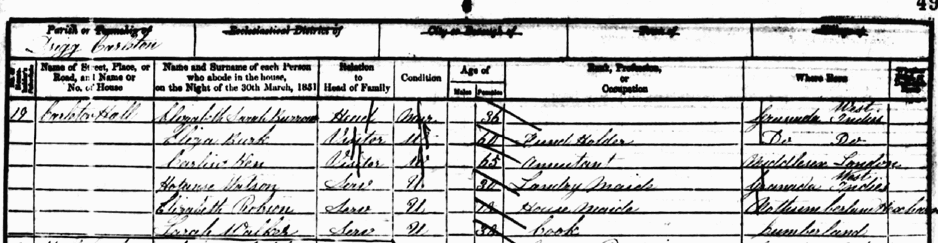 49
Parish or Township of Ecclesiastical District of City or Borough of Town of Village of
Carleton
Name of Street, Place, or Road, and Name or No. of House Name and Surname of each Person who abode in the house, on the Night of the 30th March, 1851 Relation to Head of Family Condition Age of Males Females Rank, Profession, or Occupation Where Born
19 Carleton Hall Elizabeth Sarah Burrow Head Mar 36 Grenada West Indies
Eliza Burk Visitor U 60 Fund Holder Do Do
Visitor 65 Annuitant Middlesex London
Watson Serv U 30 Landry Maid Granada West Indies
Elizabeth Robson Serv U House Maid Northumberland
Sarah Walker Serv U 38 Cook Cumberland